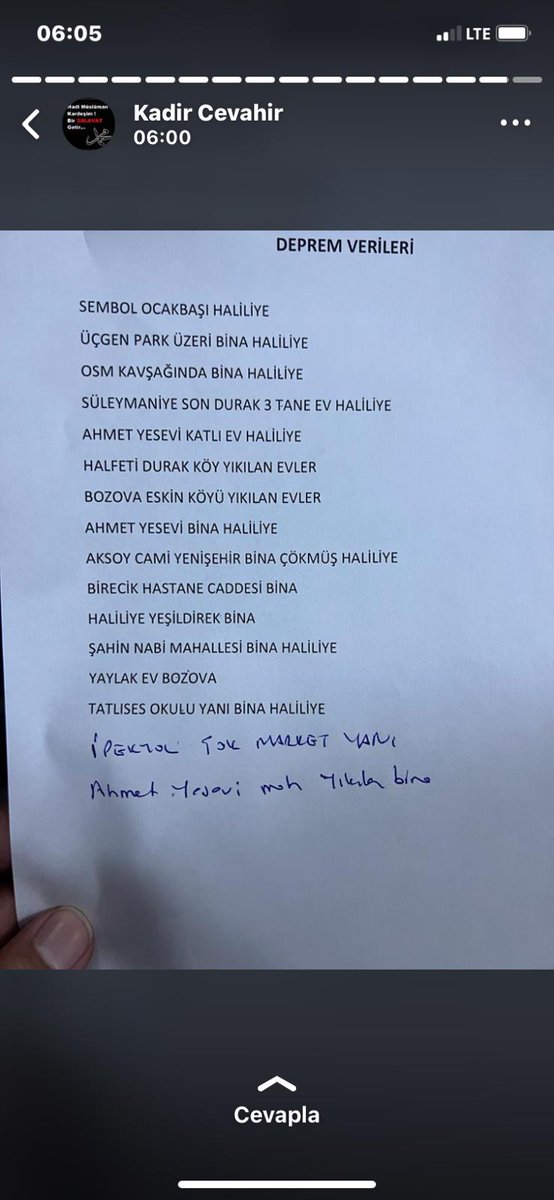 06:05
LTE
Kadir Cevahir
06:00
Hadi Müslüman
Kardeşim !
Bir SALAVAT
Getir...
DEPREM VERİLERİ
SEMBOL OCAKBAŞI HALİLİYE
ÜÇGEN PARK ÜZERİ BİNA HALİLİYE
OSM KAVŞAĞINDA BİNA HALİLİYE
SÜLEYMANİYE SON DURAK 3 TANE EV HALİLİYE
AHMET YESEVİ KATLI EV HALİLİYE
HALFETİ DURAK KÖY YIKILAN EVLER
BOZOVA ESKİN KÖYÜ YIKILAN EVLER
AHMET YESEVİ BİNA HALİLİYE
AKSOY CAMİ YENİŞEHİR BİNA ÇÖKMÜŞ HALİLİYE
BİRECİK HASTANE CADDESİ BİNA
HALİLİYE YEŞİLDİREK BİNA
ŞAHİN NABİ MAHALLESİ BİNA HALİLİYE
YAYLAK EV BOZOVA
TATLISES OKULU YANI BİNA HALİLİYE
İPEKYOL ŞOK MARKET YANI
Ahmet Yesevi mah Yıkılan bina
Cevapla